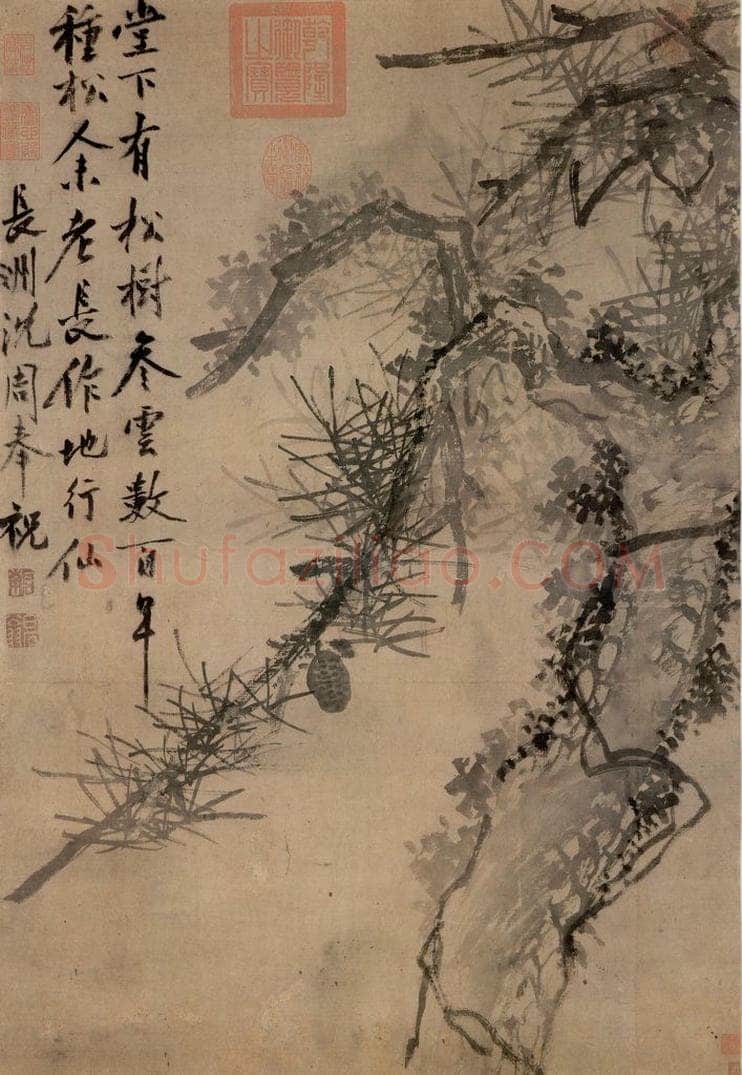 乾隆御覽之寶
堂下有松樹參雲數百年
種松人未老長作地行仙
長洲沈周奉祝
Shufaziliao.COM